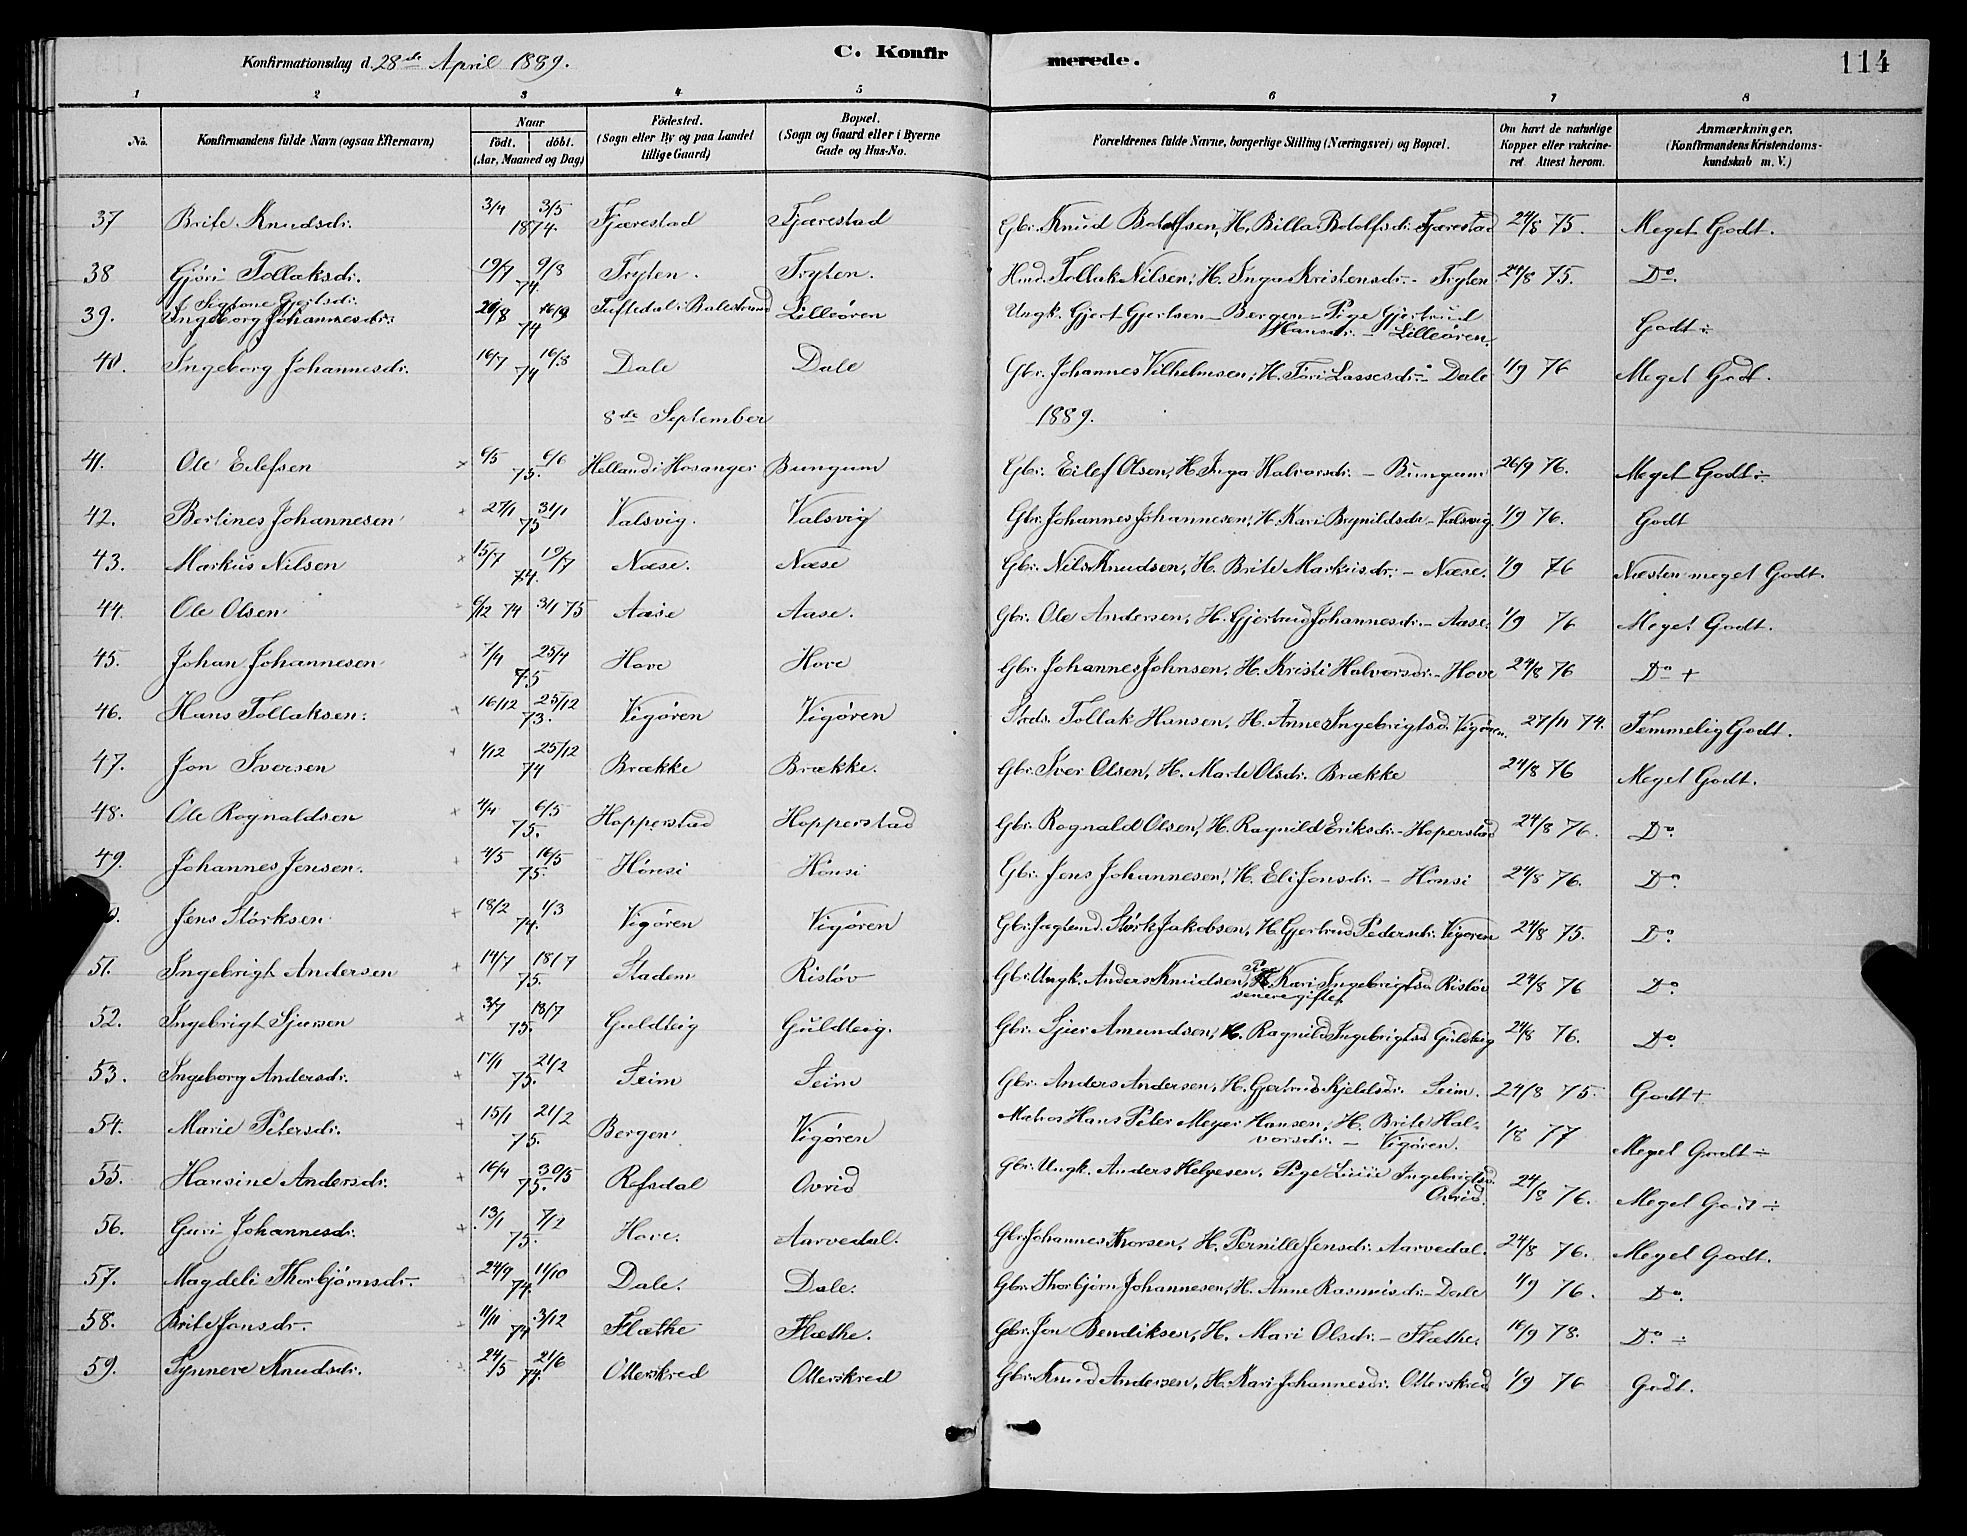 Konfirmationsdag d. 28de April 1889. C. Konfirmerede. 114
1 2 3 4 5 6 7 8
No. Konfirmandens fulde Navn (ogsaa Efternavn) Naar födt. döbt. (Aar, Maaned og Dag) Födested. (Sogn eller By og paa Landet tillige Gaard) Bopæl. (Sogn og Gaard eller i Byerne Gade og Hus-No. Forældrenes fulde Navne, borgerlige Stilling (Næringsvei) og Bopæl. Om havt de naturlige Kopper eller vakcineret. Attest herom. Anmærkninger. (Konfirmandens Kristendomskundskab m. V.)
37 Brite Knudsdr. 3/4 3/5 1874. Fjærestad Fjærestad Gbr. Knud Botolfsen, H. Billa Botolfsdr. Fjærestad 24/8 75. Meget Godt.
38 Gjøri Tollaksdr. 19/7 9/8 74. Tryten. Tryten. Hmd. Tollak Nilsen, H. Inga Kristensdr. - Tryten 24/8 75. Do.
39. Ingeborg Johannesdr. Gjertsdr. 74 Tuftedal i Balestrand Lilleören Ungk. Gjert Gjertsen - Bergen - Pige Gjertrud Hansdr. - Lilleören. Godt ÷
40. Ingeborg Johannesdr. 16/7 16/8 74 Dale Dale Gbr. Johannes Vilhelmsen, H. Töri Lassesdr. - Dale 1/9 76 Meget Godt.
8de September 1889.
41. Ole Eilefsen × 6/5 6/6 75. Helland i Hosanger Bungum Gbr. Eilef Olsen, H. Inga Halvorsdr. - Bungum 26/9 76. Meget Godt ÷
42. Bertines Johannesen 27/1 31/1 75 Valsvig. Valsvig Gbr. Johannes Johannesen, H. Kari Brynildsdr. - Valsvig. 1/9 76. Godt
43. Markus Nilsen × 15/7 19/7 74. Næse. Næse Gbr. Nils Knudsen, H. Brite Markusdr. - Næse. 1/9 76 Næsten meget Godt.
44. Ole Olsen 6/12 74 3/1 75 Aase Aase. Gbr. Ole Andersen, H. Gjertrud Johannesdr. - Aase. 1/9 76 Meget Godt.
45. Johan Johannesen 7/4 25/4 75 Hove Hove Gbr. Johannes Johnsen, H. Kristi Halvorsdr. - Hove 24/8 76 Do +
46. Hans Tollaksen. 16/12 25/12 73. Vigören Vigören Tollak Hansen, H. Anne Ingebrigtsd. Vigören. 27/11 74. Temmelig Godt.
47. Jon Iversen 1/12 25/12 74 Brække Brække. Gbr. Iver Olsen, H. Marte Olsdr. Brække 24/8 76 Meget Godt.
48. Ole Rognaldsen 4/4 6/5 75. Hopperstad Hopperstad Gbr. Rognald Olsen, H. Ragnild Eriksdr. - Hoperstad 24/8 76. Do.
49. Johannes Jensen. 4/5 16/5 75. Hönsi Hönsi Gbr. Jens Johannesen, H. Eli Jonsdr. - Hönsi 24/8 76. Do.
0. Jens Störksen 18/2 1/3 74. Vigören Vigören Störk Jakobsen, H. Gjertrud Pedersdr. Vigören 24/8 75. Do.
51. Ingebrigt Andersen 14/7 18/7 75. Stadem Rislöv Gbr. Ungk. Anders Knudsen, Pige Kari Ingebrigtsd. Rislöv senere giftet 24/8 76 Do.
52. Ingebrigt Sjursen 3/7 18/7 75. Guldteig Guldteig. Gbr. Sjur Amundsen, H. Ragnild Ingebrigtsd. Guldteig 24/8 76. Do.
53. Ingeborg Andersdr. 17/1 21/2 75. Seim Seim Gbr. Anders Andersen, H. Gjertrud Kjeldsdr. Seim. 24/8 75. Godt +
54. Marie Petersdr. 15/1 21/2 75. Bergen Vigören Matros Hans Peter Meyer Hansen, H. Brite Halvorsdr. - Vigören. 1/8 77 Meget Godt ÷
55. Hansine Andersdr. 16/4 30/5 75. Refsdal Ovrid Gbr. Ungk. Anders Helgesen. Pige Ingebrigtsd. Ovrid. 24/8 76. Meget Godt ÷
56. Guri Johannesdr. 13/1 7/2 75. Hove. Aarvedal. Gbr. Johannes Thorsen, H. Pernille Jensdr. Aarvedal. 24/8 76. Meget Godt.
57. Magdeli Thorbjörnsdr. 24/9 11/10 74. Dale. Dale. Gbr. Thorbjörn Johannesen, H. Anne Rasmusdr. - Dale 1/9 76. Do.
58. Brite Jonsdr. 11/11 3/12 74 Flæthe Flæthe. Gbr. Jon Bendiksen, H. Mari Olsdr. - Flæthe. 16/9 78. Do ÷
59. Synneve Knudsdr. 24/5 21/6 74. Otterskred Otterskred Gbr. Knud Andersen, H. Kari Johannesdr. Otterskred 1/9 76 Godt.